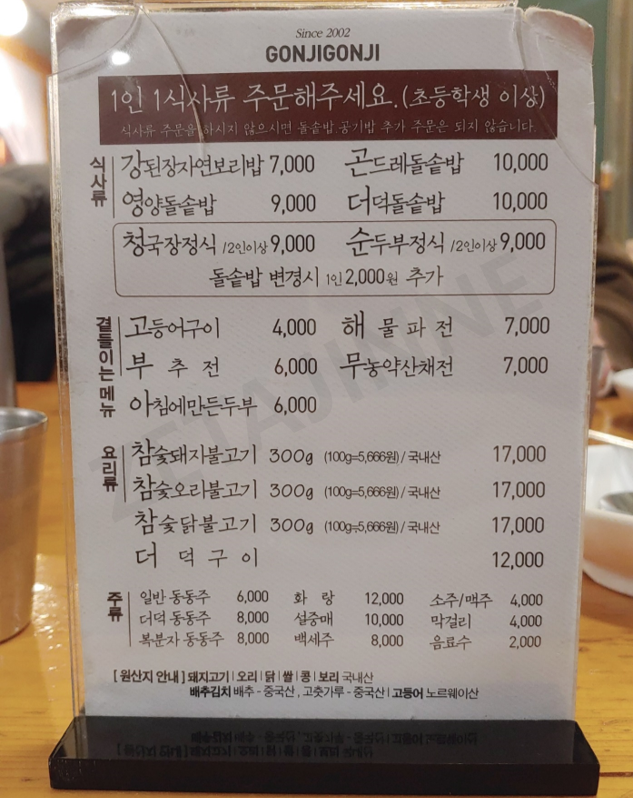 Since 2002
GONJIGONJI
1인 1식사류 주문해주세요.(초등학생 이상)
식사류 주문을 하시지 않으시면 돌솥밥 공기밥 추가 주문은 되지 않습니다.
식사류
강된장자연보리밥 7,000 곤드레돌솥밥 10,000
영양돌솥밥 9,000 더덕돌솥밥 10,000
청국장정식 /2인이상 9,000 순두부정식 /2인이상 9,000
돌솥밥 변경시 1인 2,000원 추가
곁들이는메뉴
고등어구이 4,000 해물파전 7,000
부추전 6,000 무농약산채전 7,000
아침에만든두부 6,000
요리류
참숯돼지불고기 300g (100g=5,666원) / 국내산 17,000
참숯오리불고기 300g (100g=5,666원) / 국내산 17,000
참숯닭불고기 300g (100g=5,666원) / 국내산 17,000
더덕구이 12,000
주류
일반 동동주 6,000 화랑 12,000 소주/맥주 4,000
더덕 동동주 8,000 설중매 10,000 막걸리 4,000
복분자 동동주 8,000 백세주 8,000 음료수 2,000
[ 원산지 안내 ] 돼지고기 | 오리 | 닭 | 쌀 | 콩 | 보리 국내산
배추김치 배추 - 중국산 , 고춧가루 - 중국산 | 고등어 노르웨이산
ZETAJINNE